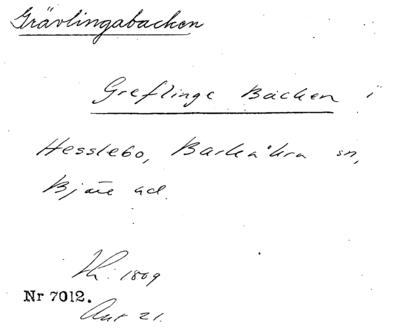 Grävlingabacken
Greflinge Backen i
Hesslebo, Barkåkra sn,
Bjäre hd.
1809
Nr 7012.
21.